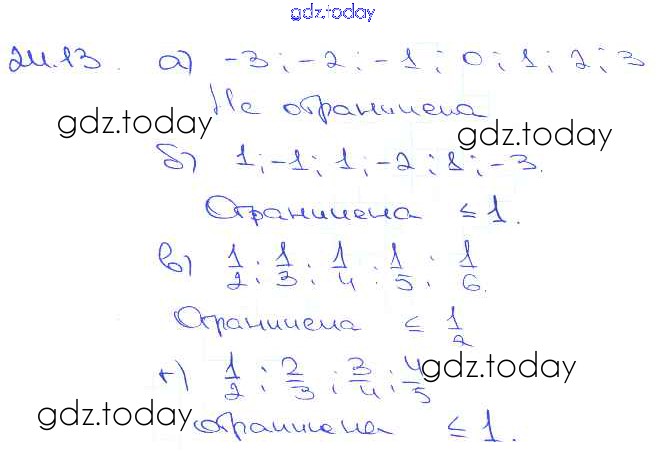 gdz.today
24.13. а) -3; -2; -1; 0; 1; 2; 3
Не ограничена
gdz.today
gdz.today
б) 1; -1; 1; -2; 1; -3.
Ограничена ≤ 1.
в) 1/2; 1/3; 1/4; 1/5; 1/6.
Ограничена ≤ 1/2
г) 1/2; 2/3; 3/4; 4/5
gdz.today
gdz.today
ограничена ≤ 1.